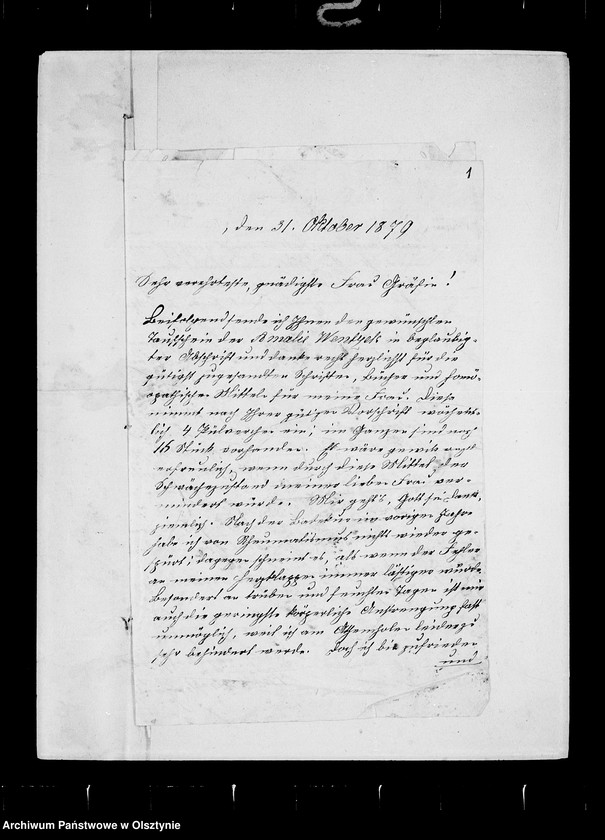 1
, den 31. Oktober 1879
Sehr verehrteste, gnädigste Frau Gräfin!
Beifolgend sende ich Ihnen den gewünschten
Taufschein der Amalie Wentzek in beglaubig-
ter Abschrift und danke recht herzlichst für die
gütigst zugesandten Schriften, Bücher und homö-
opathischen Mitteln für meine Frau. Diese
nimmt nach Ihrer gütigen Vorschrift wöchent-
lich 4 Pülverchen ein; im Ganzen sind noch
16 Stück vorhanden. Es wäre gewiß recht
erfreulich, wenn durch diese Mittel der
Schwächezustand meiner lieben Frau ver-
mindert würde. Mir geht's, Gott sei Dank,
ziemlich. Nach der Badekur im vorigen Jahre
habe ich von Rheumatismus nichts wieder ge-
spürt; dagegen scheint es, als wenn der Fehler
an meinen Herzklappen immer lästiger würde.
Besonders an trüben und feuchten Tagen ist mir
auch die geringste körperliche Anstrengung fast
unmöglich, weil ich am Athemholen leider zu
sehr behindert werde. Doch ich bin zufrieden
und
Archiwum Państwowe w Olsztynie